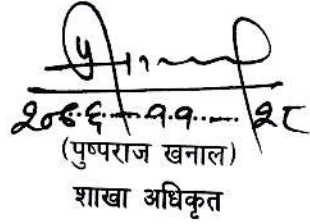 २०८६.११.२८
(पुष्पराज खनाल)
शाखा अधिकृत